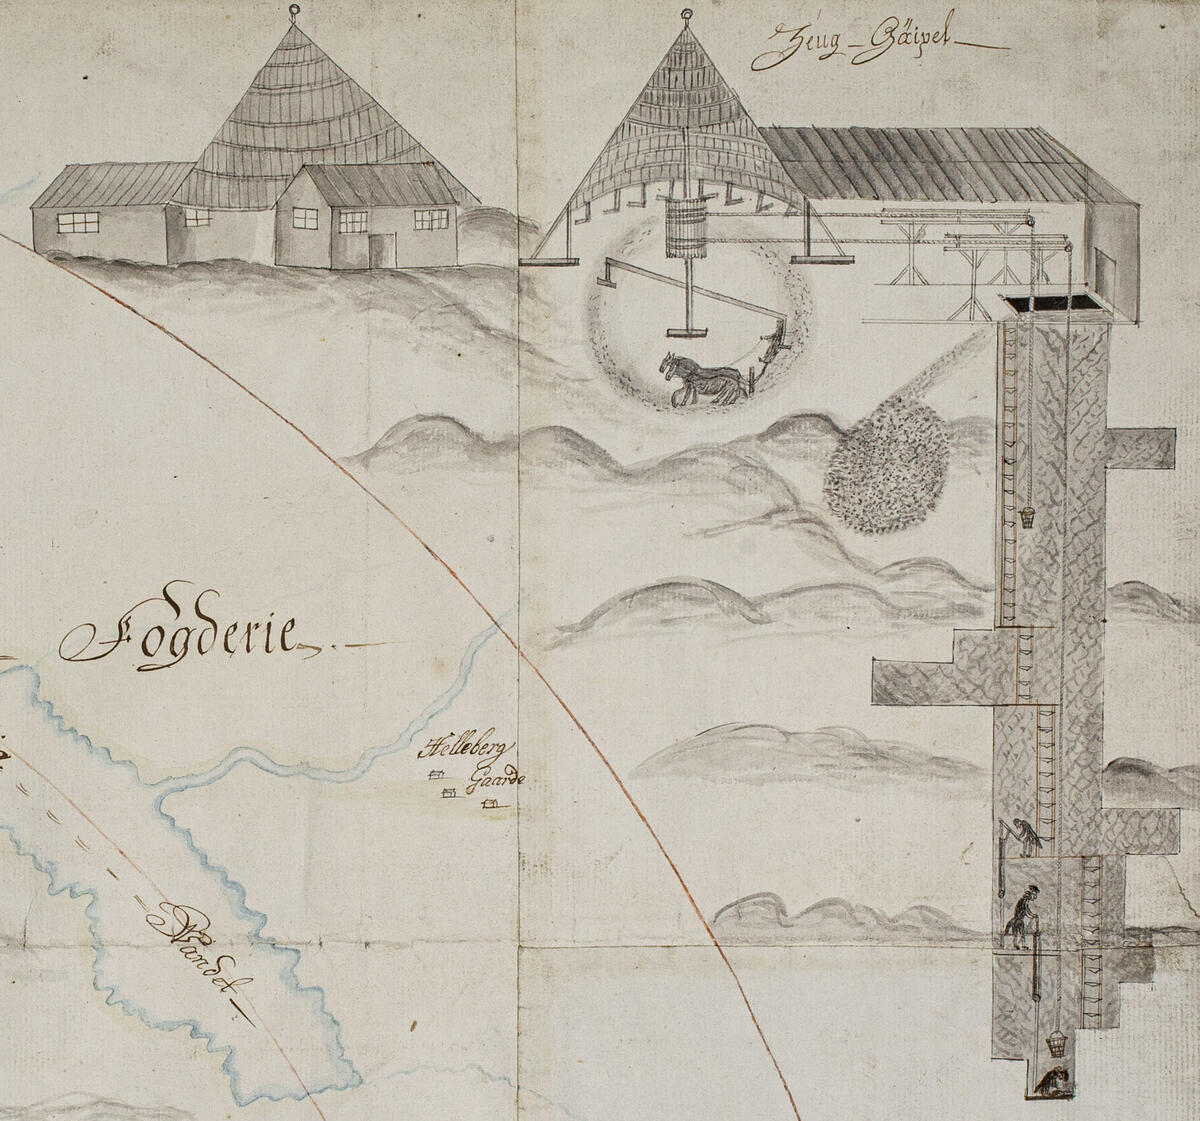 Zeug-Gäipel
Fogderie
Helleberg
Gaarde
Nandel